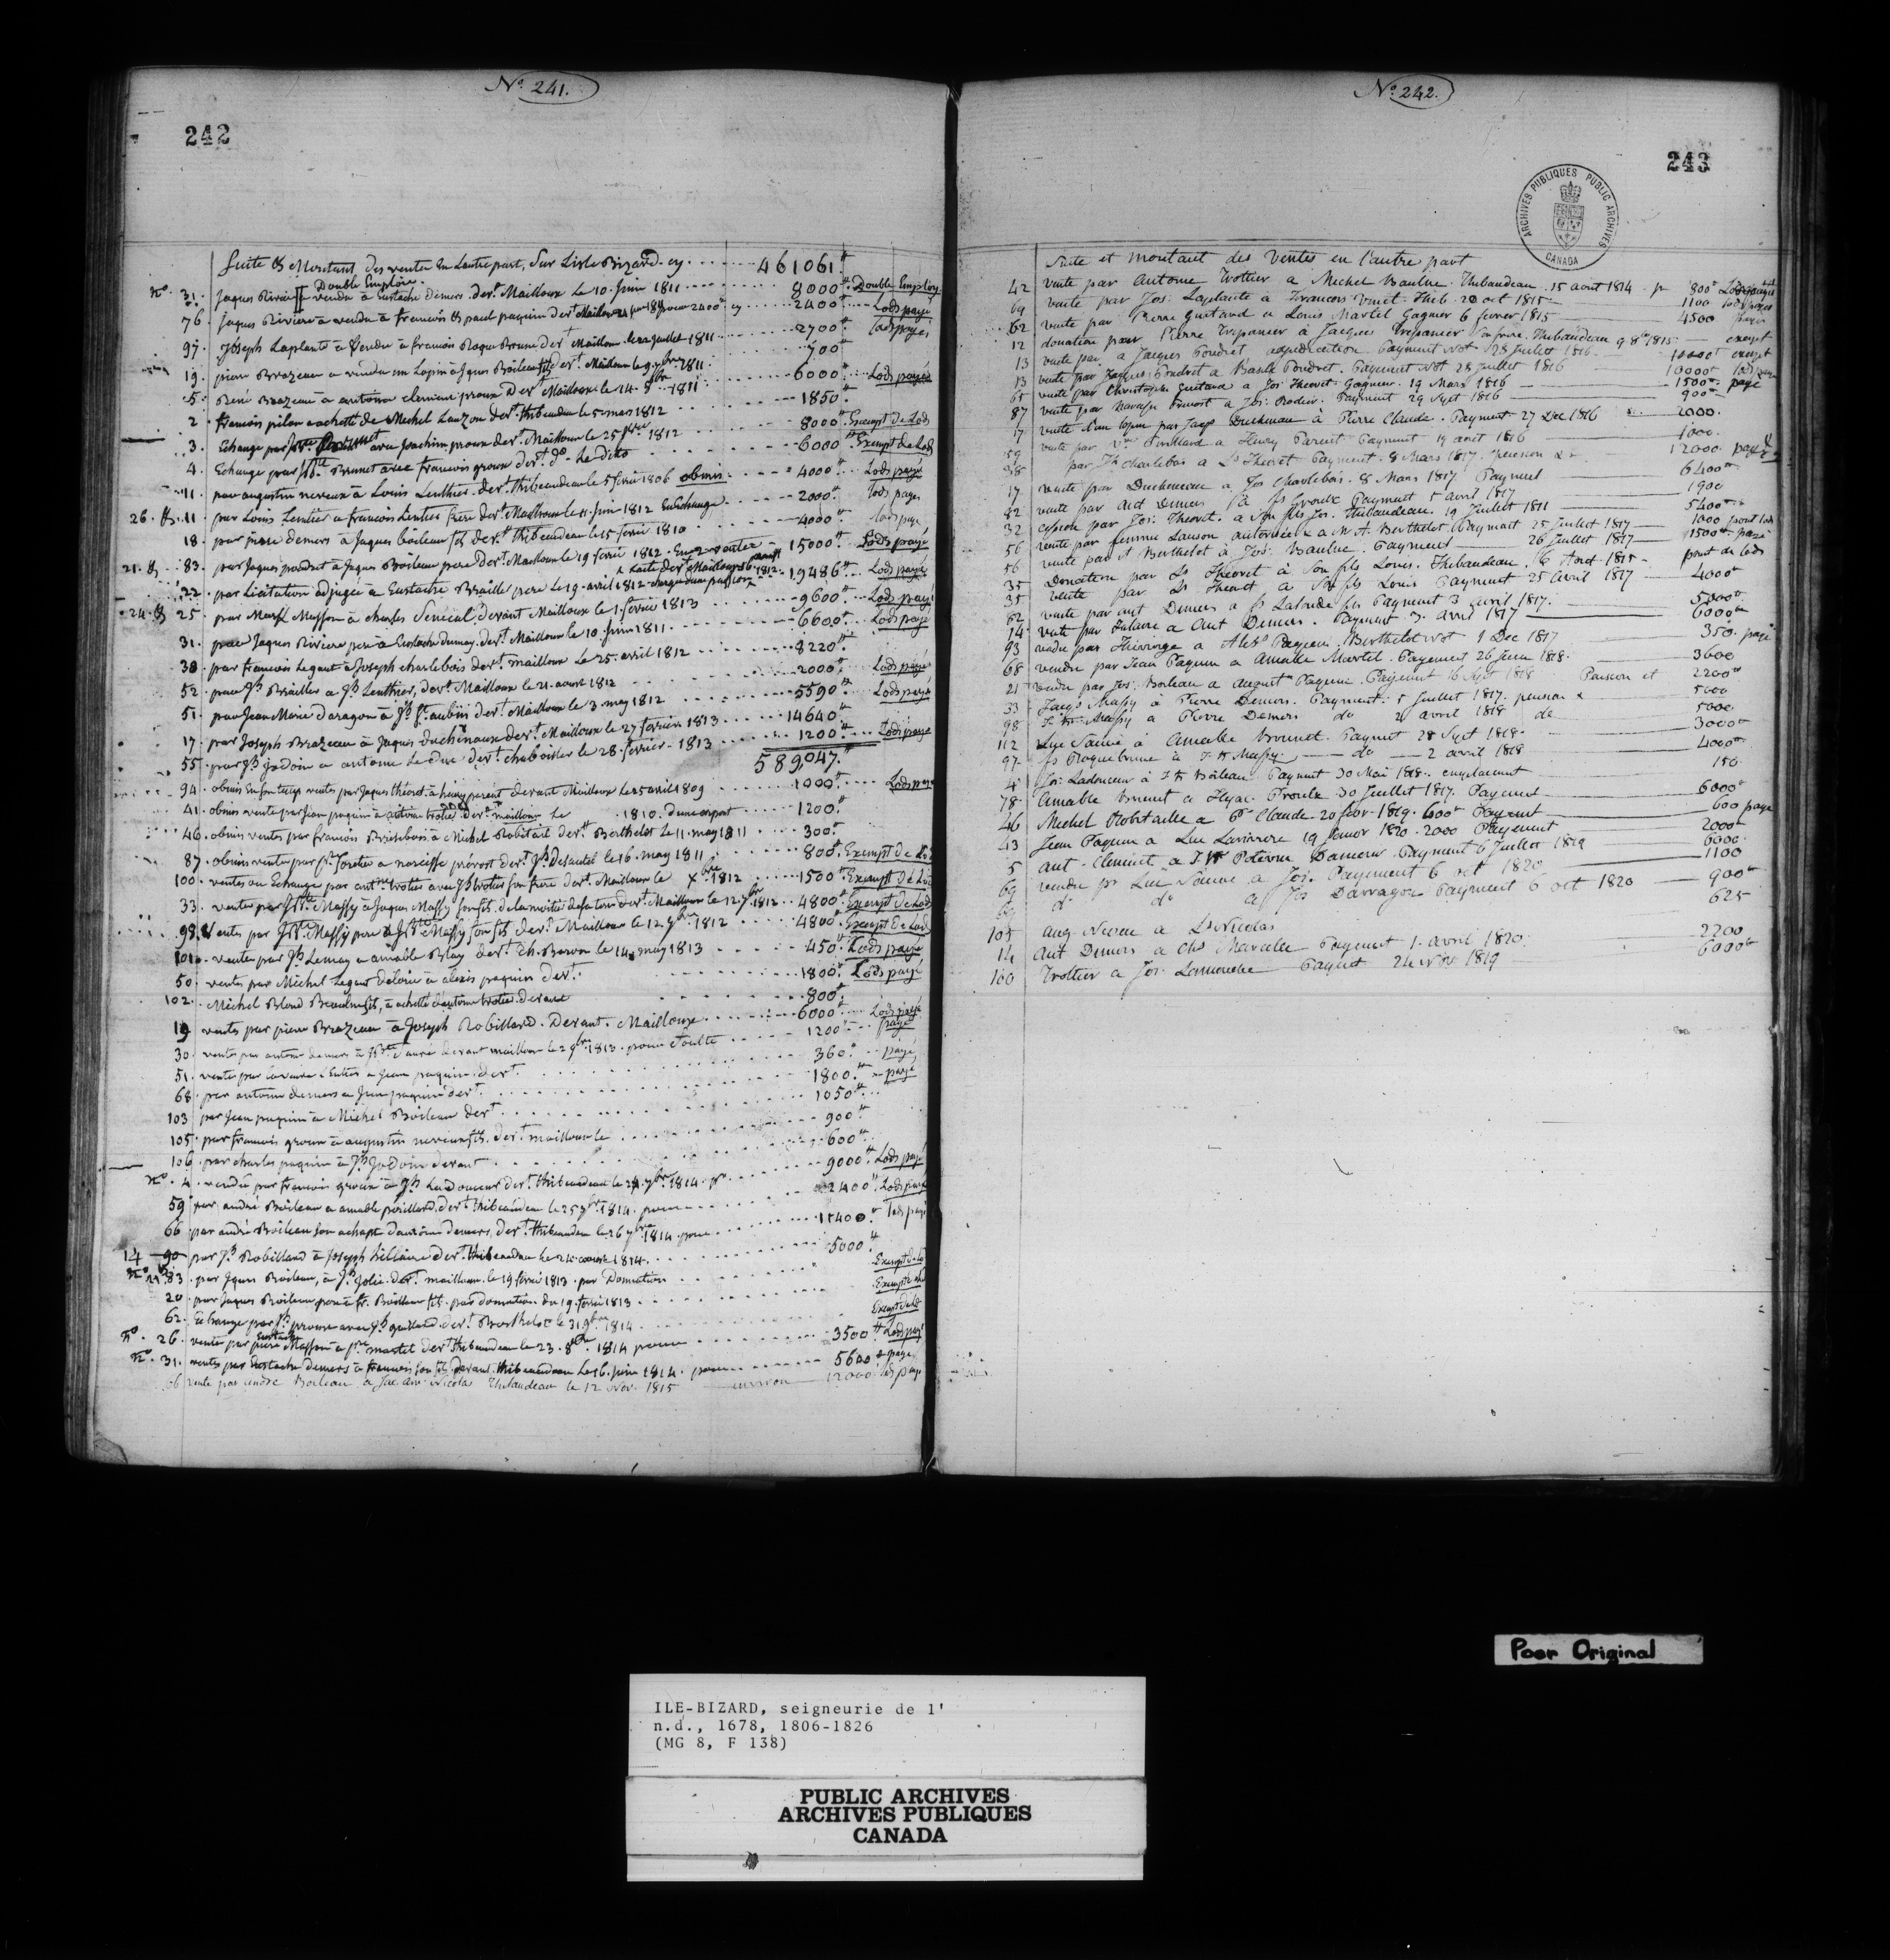 No. 241.
242
Suite & Montant des ventes en L'autre part, sur L'isle Bizard. cy 461061
Double Employ.
No. 31. Jaques Riviere a vendu à Eustache Demers. devt. Mailloux le 10. juin 1811 8000 Double Employ
76. Jaques Riviere à vendu à francois & paul paquin devt Mailloux pour 2400 cy 2400 Lods payé
97. Joseph Laplante à Vendu à francois Roque Brune devt Mailloux le juillet 1811 2700 Lods payé
19. pierre Brazeau a vendu un Lopin à Jques Boileau fils devt. Mailloux le 9. 1811 700
5. René Brazeau à antoine clement proux Devt Mailloux le 14. 8bre 1811 6000 Lods payé
2. francois pilon a achetté de Michel Lauzon devt. thibeaudau le 5 mars 1812 1850
3. Echange par avec Joachim proux devt. Mailloux le 25 1812 8000 Exempt de Lods
4. Echange par Jbte Brunet avec francois proux devt. do. le dito 6000 Exempt de Lods
11. par augustin neveux à Louis Lenthier. devt. thibeaudeau le 5 fevrie 1806 obmis 4000 Lods payé
26. & 11. par Louis Lentier a francois Lentier frere devt Mailloux le 11. juin 1812 Echange 2000 lods payés
18. par piere demers à Jaques boileau fils devt. thibeaudeau le 15 fevrié 1810 4000 lods payé
21. & 83. par Jaques poudret à Jaques Boileau pere devt. Mailloux le 19 fevrié 1812. En 2 ventes 15000 Lods payé
22. par Licitation adjugée a Eustache Braille pere Le 19. avril 1812 19486 Lods payé
24. & 25. par Masson à charles Senecal devant Mailloux le 1. fevrier 1813 9600 Lods payé
31. par Jaques Riviere pere à Eustache dumay. devt. Mailloux le 10. juin 1811 6600 Lods payé
38. par francois Legaut à Joseph charlebois devt. mailloux le 25. avril 1812 8220
52. par Jh Brailler a Jh Lenthier, devt. Mailloux le 21. aoust 1812 2000 Lods payé
51. par Jean Marie daragon à Jh St. aubin devt. Mailloux le 3. may 1812 5590 Lods payé
17. par Joseph Brazeau à Jaques duchenaux devt. Mailloux le 27 fevrier 1813 14640
55. par Jh jadoin a antoine Le duc devt. chaboisler le 28. fevrier. 1813 1200 Lods payé
589047
94. obmis En son temps ventes par Jaques théoret à henry parent devant Mailloux le 25 avril 1809 1000 Lods payé
41. obmis vente par Jean paquin à antoine trotié. devt. mailloux Le 1810. d'une part 1200
46. obmis ventes par francois Brisebois à Michel Robitail devt. Berthelot Le 11. may 1811 300
87. obmis vente par Jh fortier a narcisse prévost devt. Jh Desautel le 16. may 1811 800 Exempt de Lods
100. ventes ou Echange par antne trotie avec Jh trotié son frere devt. Mailloux le Xbre 1812 1500 Exempt de Lods
33. ventes par Jbte Massy à Jaques Massy son fils. de la moitié de sa terre devt. Mailloux le 12. 7br 1812 4800 Exempt de Lods
98. Ventes par Jbte. Massy pere à Jbte Massy son fils devt. Mailloux le 12. 9bre 1812 4800 Exempt de Lods
101. ventes par Jh Lemay a amable Blay devt. Th. Baron le 14. may 1813 450 Lods payé
50. ventes par Michel Legaut délorie à alexis paquin devt. 1800 Lods payé
102. Michel Blond Beaulne fils, à achetté d'antoine trotié. devant 800
19 ventes par pierre Brazeau à Joseph Robillard. Devant. Mailloux 6000 Lods payé
30. ventes par antoine demers à Jbte Sauvé devant mailloux le 2 9bre. 1813. pour Soulte 1200 payé
51. ventes par Lenthier a Jean paquin. devt. 360 payé
68. par antoine demers a Jean paquin devt. 1800 payé
103 par Jean paquin à Michel Boileau devt 1050
105. par francois proux à augustin neveux fils. devt. mailloux le 900
106. par charles paquin à Jh. Jadoin devant 600
No. 4. vendu par francois proux à Jh Ladouceur devt. thibeaudeau le 7bre. 1814. pr 9000 Lods payé
59. par andré Boileau a amable robillard. devt. thibeaudeau le 25 1814. pour 2400 Lods payé
66 par andré Boileau son achapt d'antoine demers, devt. thibeaudeau le 26 1814. pour 11400 lods payé
14 90 par Jh Robillard à Joseph hillaire devt. thibeaudeau le 24. aoust 1814. 5000
No 83. par Jques Boileau, à Jh Jolie. devt. mailloux. le 19 fevrié 1813. par Donnation Exempt de Lod
20. par Jaques Boileau pere à fr. Boileau fils. par donnation du 19. fevrié 1813 Exempt de Lod
62. Echange par Jh proux avec Jh guittard. devt. Berthelot le 31. 1814 Exempt de Lod
No. 26. vente par Eustache Masson a pre martel devt. thibeaudeau le 23. 8bre 1814 pour 3500 Lods payé
No. 31. ventes par Eustache Demers à francois son fils. devant. thibeaudeau Le 16. juin 1814. pour 5600 payé
66 vente par andré Boileau à Jac Nicolas Thibaudeau le 12 Nov. 1815 environ 12000 lods payé
No. 242.
243
ARCHIVES PUBLIQUES PUBLIC ARCHIVES
CANADA
Suite et montant des Ventes en l'autre part
42 vente par Antoine Trottier a Michel Baulne. Thibaudeau. 15 aout 1814. pr 800
69 vente par Jos. Laplante à Francois Vinet. Thib. 20 oct 1815 1100 lods payés
62 vente par Pierre Guitard a Louis Martel Gagner 6 fevrier 1815 4500 payé
12 donation par Pierre Trepanier à Jacques Trepanier son frere. Thibaudeau 9 8bre 1815 exempt
13 vente par a Jacques Poudret adjudication. Payment Not 28 juillet 1816 10000 exempt
13 vente par Jacques Poudret a Basile Poudret. Payment Not 28 juillet 1816 10000 lods payé
65 vente par Christophe Guitard a Jos: Theoret. Gagnier. 19 Mars 1816 1500 payé
87 vente par Narcisse Prevost a Jos: Rodier. Payment 29 Sept 1816 900
17 vente d'un lopin par Jacqs Ducheneau à Pierre Claude. Payment 27 Dec 1816 2000
59 vente par Vve Guillard a Henry Parent Payment 19 aout 1816 1000
98 par Jh Charlebois a Ls Theoret Payment. 8 Mars 1817. pension &c 12000 payé
17 vente par Ducheneau a Jos Charlebois. 8 Mars 1817 Payment 6400
82 vente par Ant Demers à Js Proulx Payment 5 avril 1817 1900
32 cession par Jos: Theoret. a son fils Jos. Thibaudeau. 19 juillet 1811 5400
56 vente par femme Lauson autorisée a M A. Berthelot. Paymant 25 juillet 1817 1000 point lods
56 vente par A Berthelot à Jos: Baulne. Payment 26 juillet 1817 1500 payé
35 Donation par Ls Theoret à son fils Louis. Thibaudeau. 16 Aout 1815 point de lods
35 vente par Ls Theoret à son fils Louis Payment 25 avril 1817 4000
62 vente par ant Demers a fs Lalande fs Payment 3 avril 1817. 5000
14 vente par Hilaire a Ant Demers. Payment 3. avril 1817 6000
93 vendu par Thivierge a Alexs Pageau. Berthelot Not 9 Dec 1817 350 payé
68 vendu par Jean Paquin a Amable Martel. Payement 26 juin 1818. 3600
21 vendu par Jos: Boileau a August Paquin. Payement 16 Sept 1818 Pension et 2200
33 Jacqs Massy à Pierre Demers. Payment. 5 juillet 1817. pension & 5000
98 J Bte Massy a Pierre Demers do 2 avril 1818 do 5000
112 Luc Sauvé à Amable Brunet. Payment 28 Sept 1818. 3000
97 fs Roquebrune a J. Bt Massy do 2 avril 1818 4000
4 Jos: Ladouceur à J Bt Boileau Payment 30 Mai 1818. emplacement 150
78 Amable Brunet a Hyac. Proulx 30 Juillet 1817. Payement 6000
46 Michel Robitaille a Pre Claude 20 fevr. 1819. 600 Payment 600 payé
43 Jean Paquin a Luc Lariviere 19 Janvr 1820. 2000 Payement 2000
5 Ant. Clement a J Bt Poitevin Dameur. Payment 6 juillet 1819 6000
69 vendu pr Luc Sauvé a Jos. Payement 6 oct 1820 1100
69 do do a Jos Darragon Payment 6 oct 1820 900
105 Aug Neveu a Ls Nicolas 625
14 Ant Demers a Chs Payment 1. avril 1820. 2200
100 Trottier a Jos: Lamouche Paymt 24 Nov. 1819 6000
Poor Original
ILE-BIZARD, seigneurie de l'
n.d., 1678, 1806-1826
(MG 8, F 138)
PUBLIC ARCHIVES
ARCHIVES PUBLIQUES
CANADA